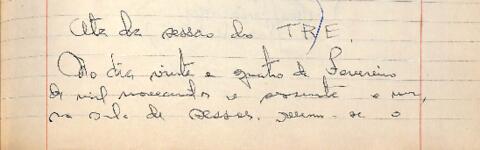 Ata da sessão do TRE.
No dia vinte e quatro de Fevereiro
de mil novecentos e sessenta e um,
na sala de sessões, reuniu-se o